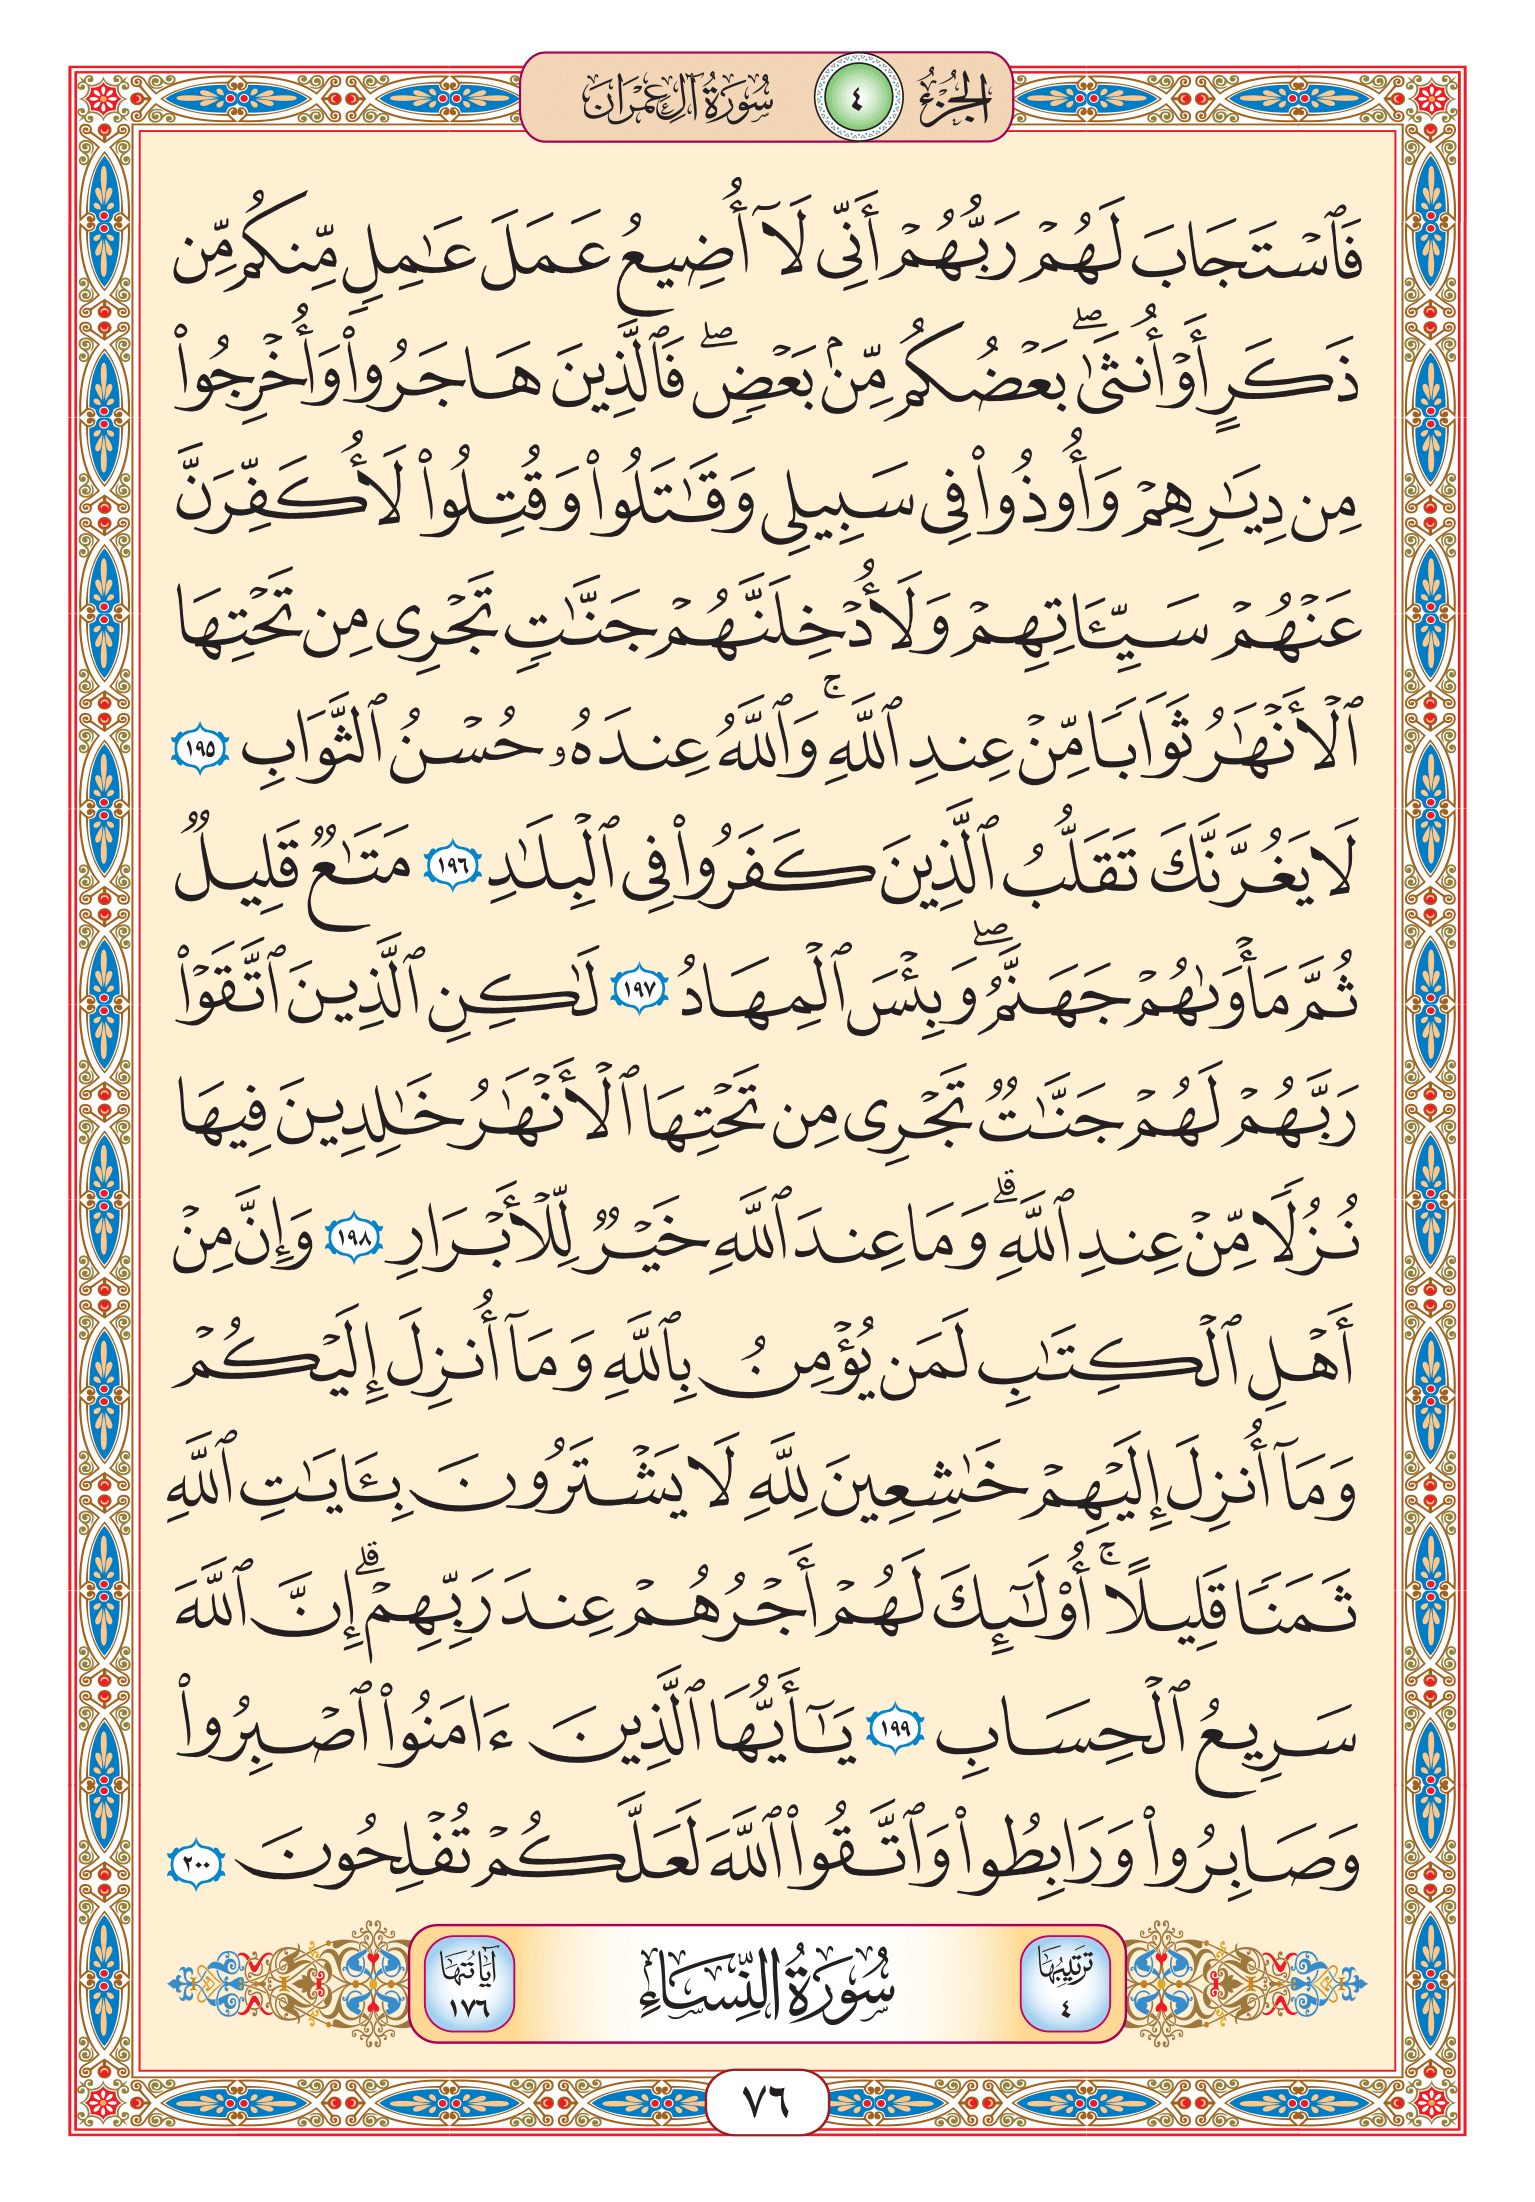 الجزء ٤ سورة آل عمران
فَٱسْتَجَابَ لَهُمْ رَبُّهُمْ أَنِّى لَآ أُضِيعُ عَمَلَ عَـٰمِلٍ مِّنكُم مِّن
ذَكَرٍ أَوْ أُنثَىٰ ۖ بَعْضُكُم مِّنۢ بَعْضٍ ۖ فَٱلَّذِينَ هَاجَرُوا۟ وَأُخْرِجُوا۟
مِن دِيَـٰرِهِمْ وَأُوذُوا۟ فِى سَبِيلِى وَقَـٰتَلُوا۟ وَقُتِلُوا۟ لَأُكَفِّرَنَّ
عَنْهُمْ سَيِّـَٔاتِهِمْ وَلَأُدْخِلَنَّهُمْ جَنَّـٰتٍ تَجْرِى مِن تَحْتِهَا
ٱلْأَنْهَـٰرُ ثَوَابًا مِّنْ عِندِ ٱللَّهِ ۚ وَٱللَّهُ عِندَهُۥ حُسْنُ ٱلثَّوَابِ ١٩٥
لَا يَغُرَّنَّكَ تَقَلُّبُ ٱلَّذِينَ كَفَرُوا۟ فِى ٱلْبِلَـٰدِ ١٩٦ مَتَـٰعٌ قَلِيلٌ
ثُمَّ مَأْوَىٰهُمْ جَهَنَّمُ ۖ وَبِئْسَ ٱلْمِهَادُ ١٩٧ لَـٰكِنِ ٱلَّذِينَ ٱتَّقَوْا۟
رَبَّهُمْ لَهُمْ جَنَّـٰتٌ تَجْرِى مِن تَحْتِهَا ٱلْأَنْهَـٰرُ خَـٰلِدِينَ فِيهَا
نُزُلًا مِّنْ عِندِ ٱللَّهِ ۗ وَمَا عِندَ ٱللَّهِ خَيْرٌ لِّلْأَبْرَارِ ١٩٨ وَإِنَّ مِنْ
أَهْلِ ٱلْكِتَـٰبِ لَمَن يُؤْمِنُ بِٱللَّهِ وَمَآ أُنزِلَ إِلَيْكُمْ
وَمَآ أُنزِلَ إِلَيْهِمْ خَـٰشِعِينَ لِلَّهِ لَا يَشْتَرُونَ بِـَٔايَـٰتِ ٱللَّهِ
ثَمَنًا قَلِيلًا ۚ أُو۟لَـٰٓئِكَ لَهُمْ أَجْرُهُمْ عِندَ رَبِّهِمْ ۗ إِنَّ ٱللَّهَ
سَرِيعُ ٱلْحِسَابِ ١٩٩ يَـٰٓأَيُّهَا ٱلَّذِينَ ءَامَنُوا۟ ٱصْبِرُوا۟
وَصَابِرُوا۟ وَرَابِطُوا۟ وَٱتَّقُوا۟ ٱللَّهَ لَعَلَّكُمْ تُفْلِحُونَ ٢٠٠
ترتيبها ٤ سُورَةُ النِّسَاءِ آياتها ١٧٦
٧٦